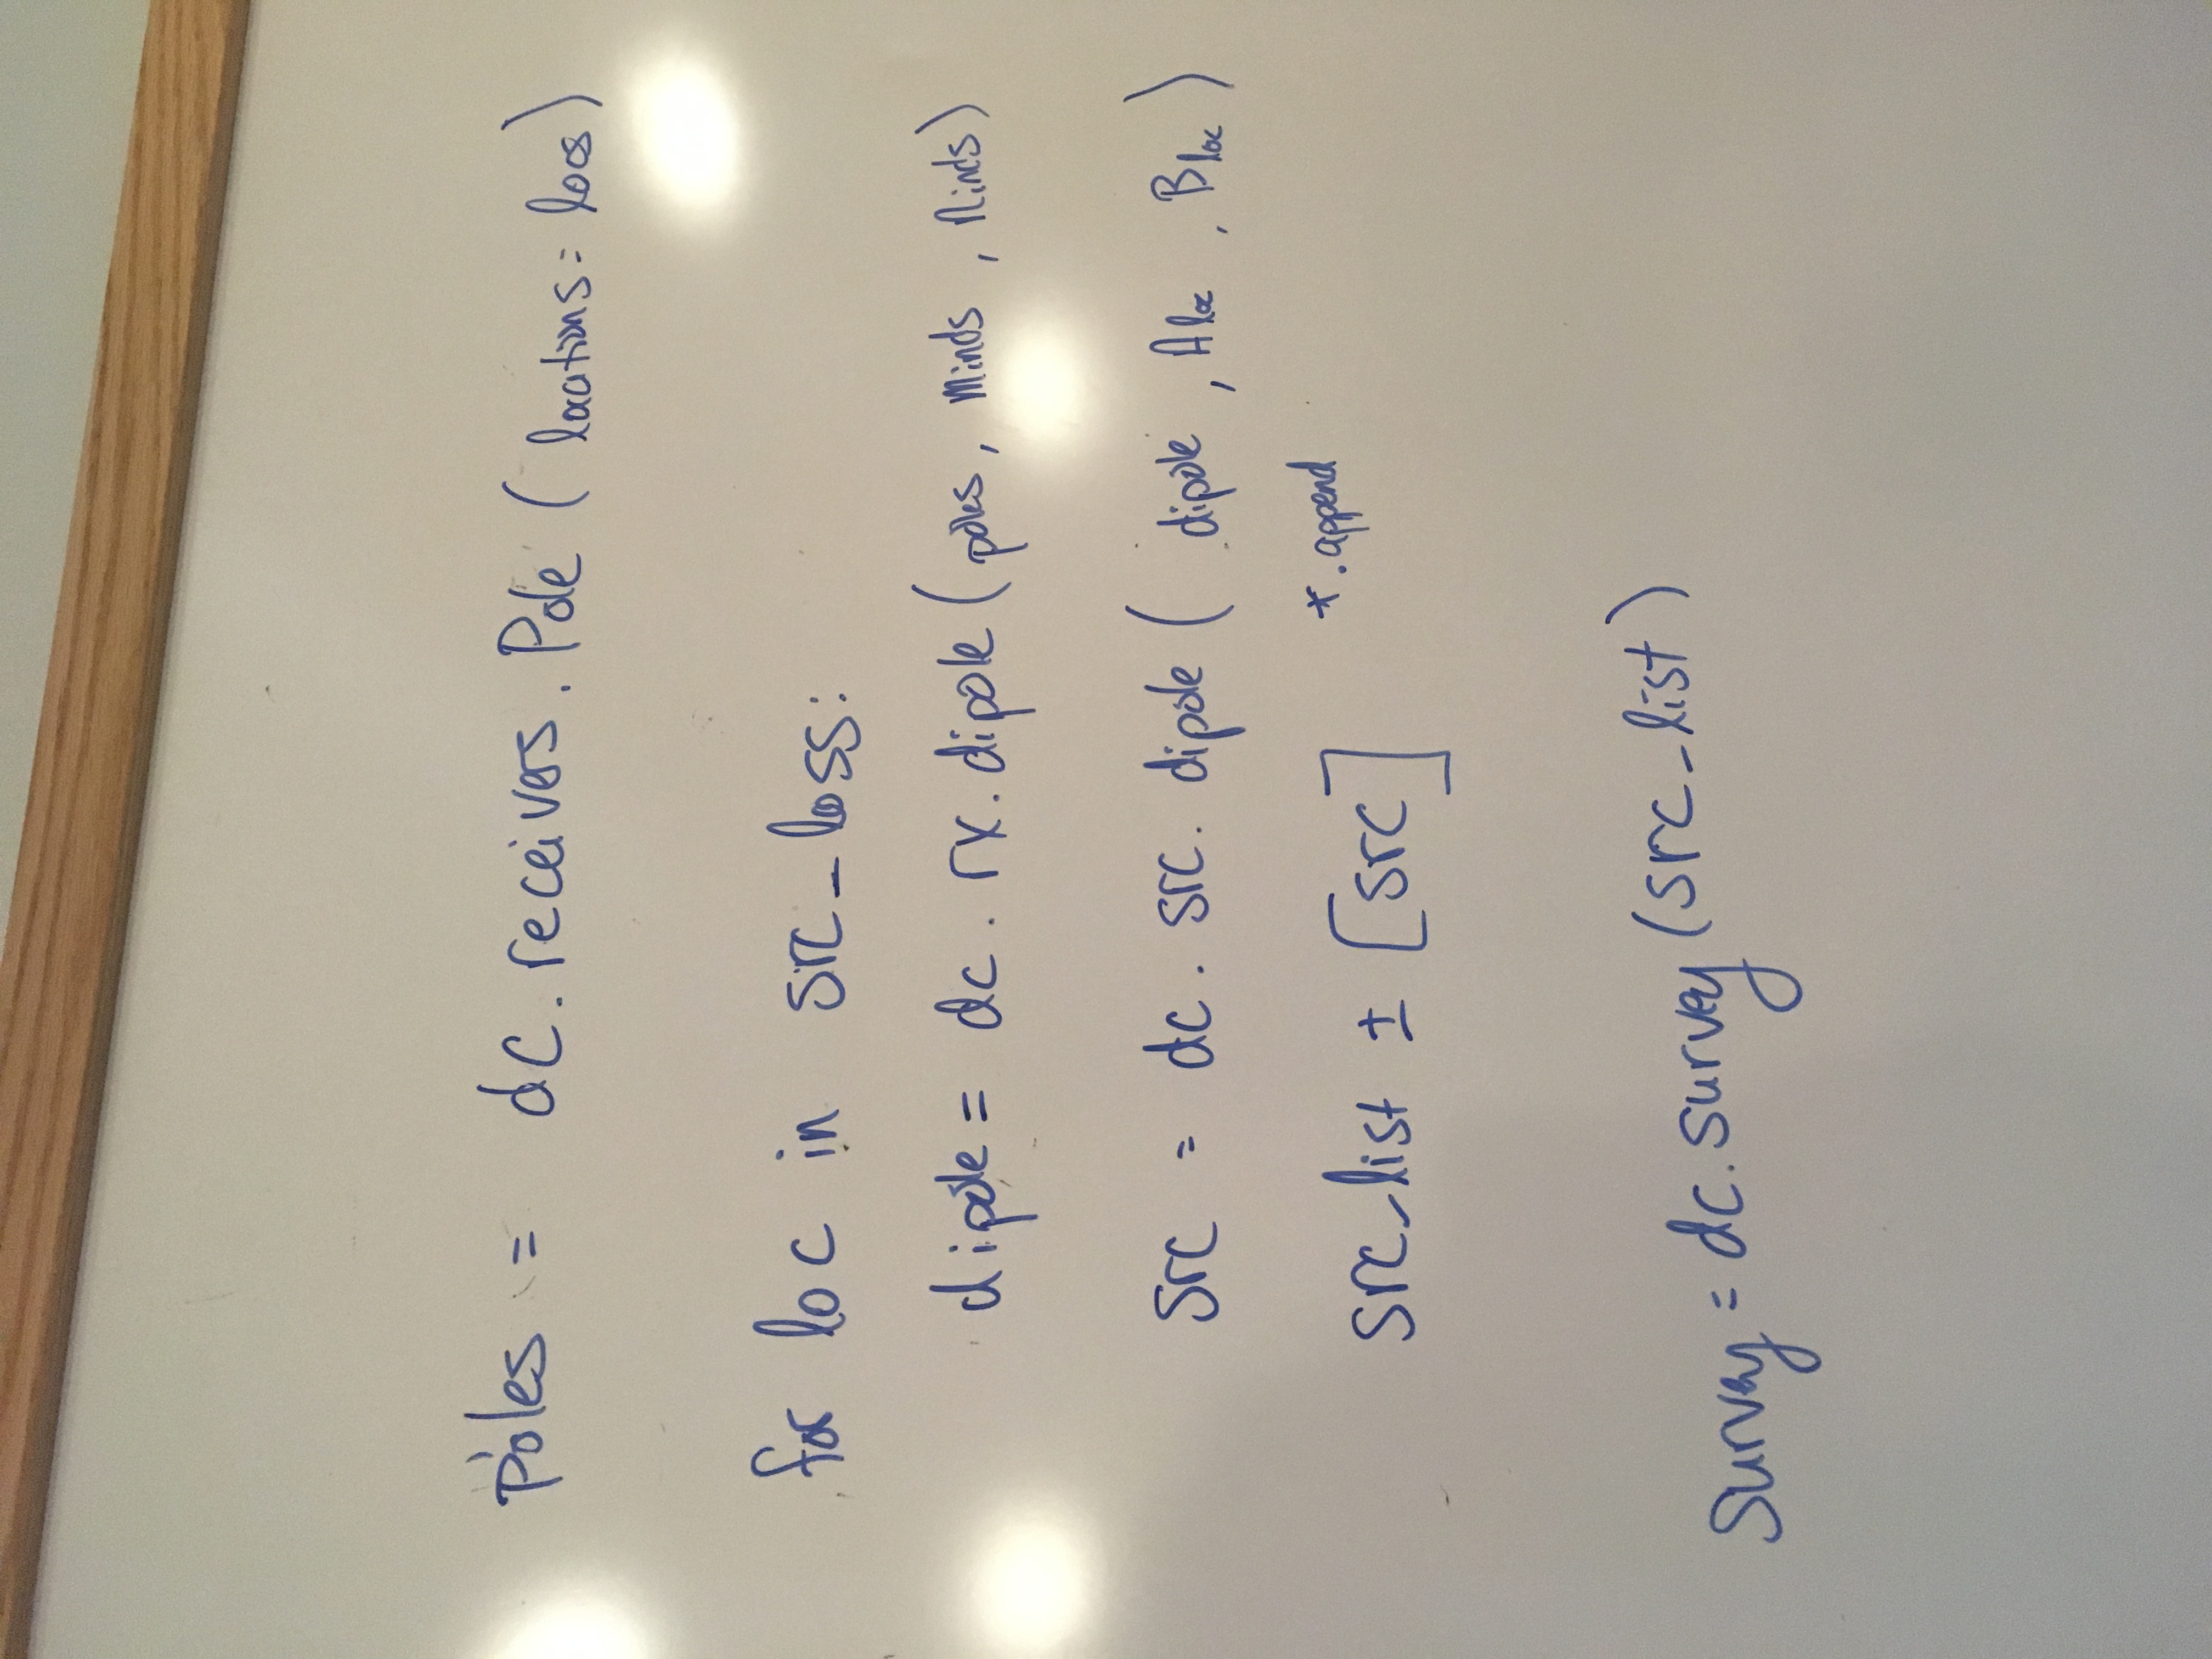 Poles = dc.receivers.Pole (locations=locs)
for loc in src_locs:
dipole = dc.rx.dipole (poles, Minds, Ninds)
src = dc.src.dipole (dipole, Aloc, Bloc)
*.append
src_list ± [src]
Survey = dc.survey (src_list)